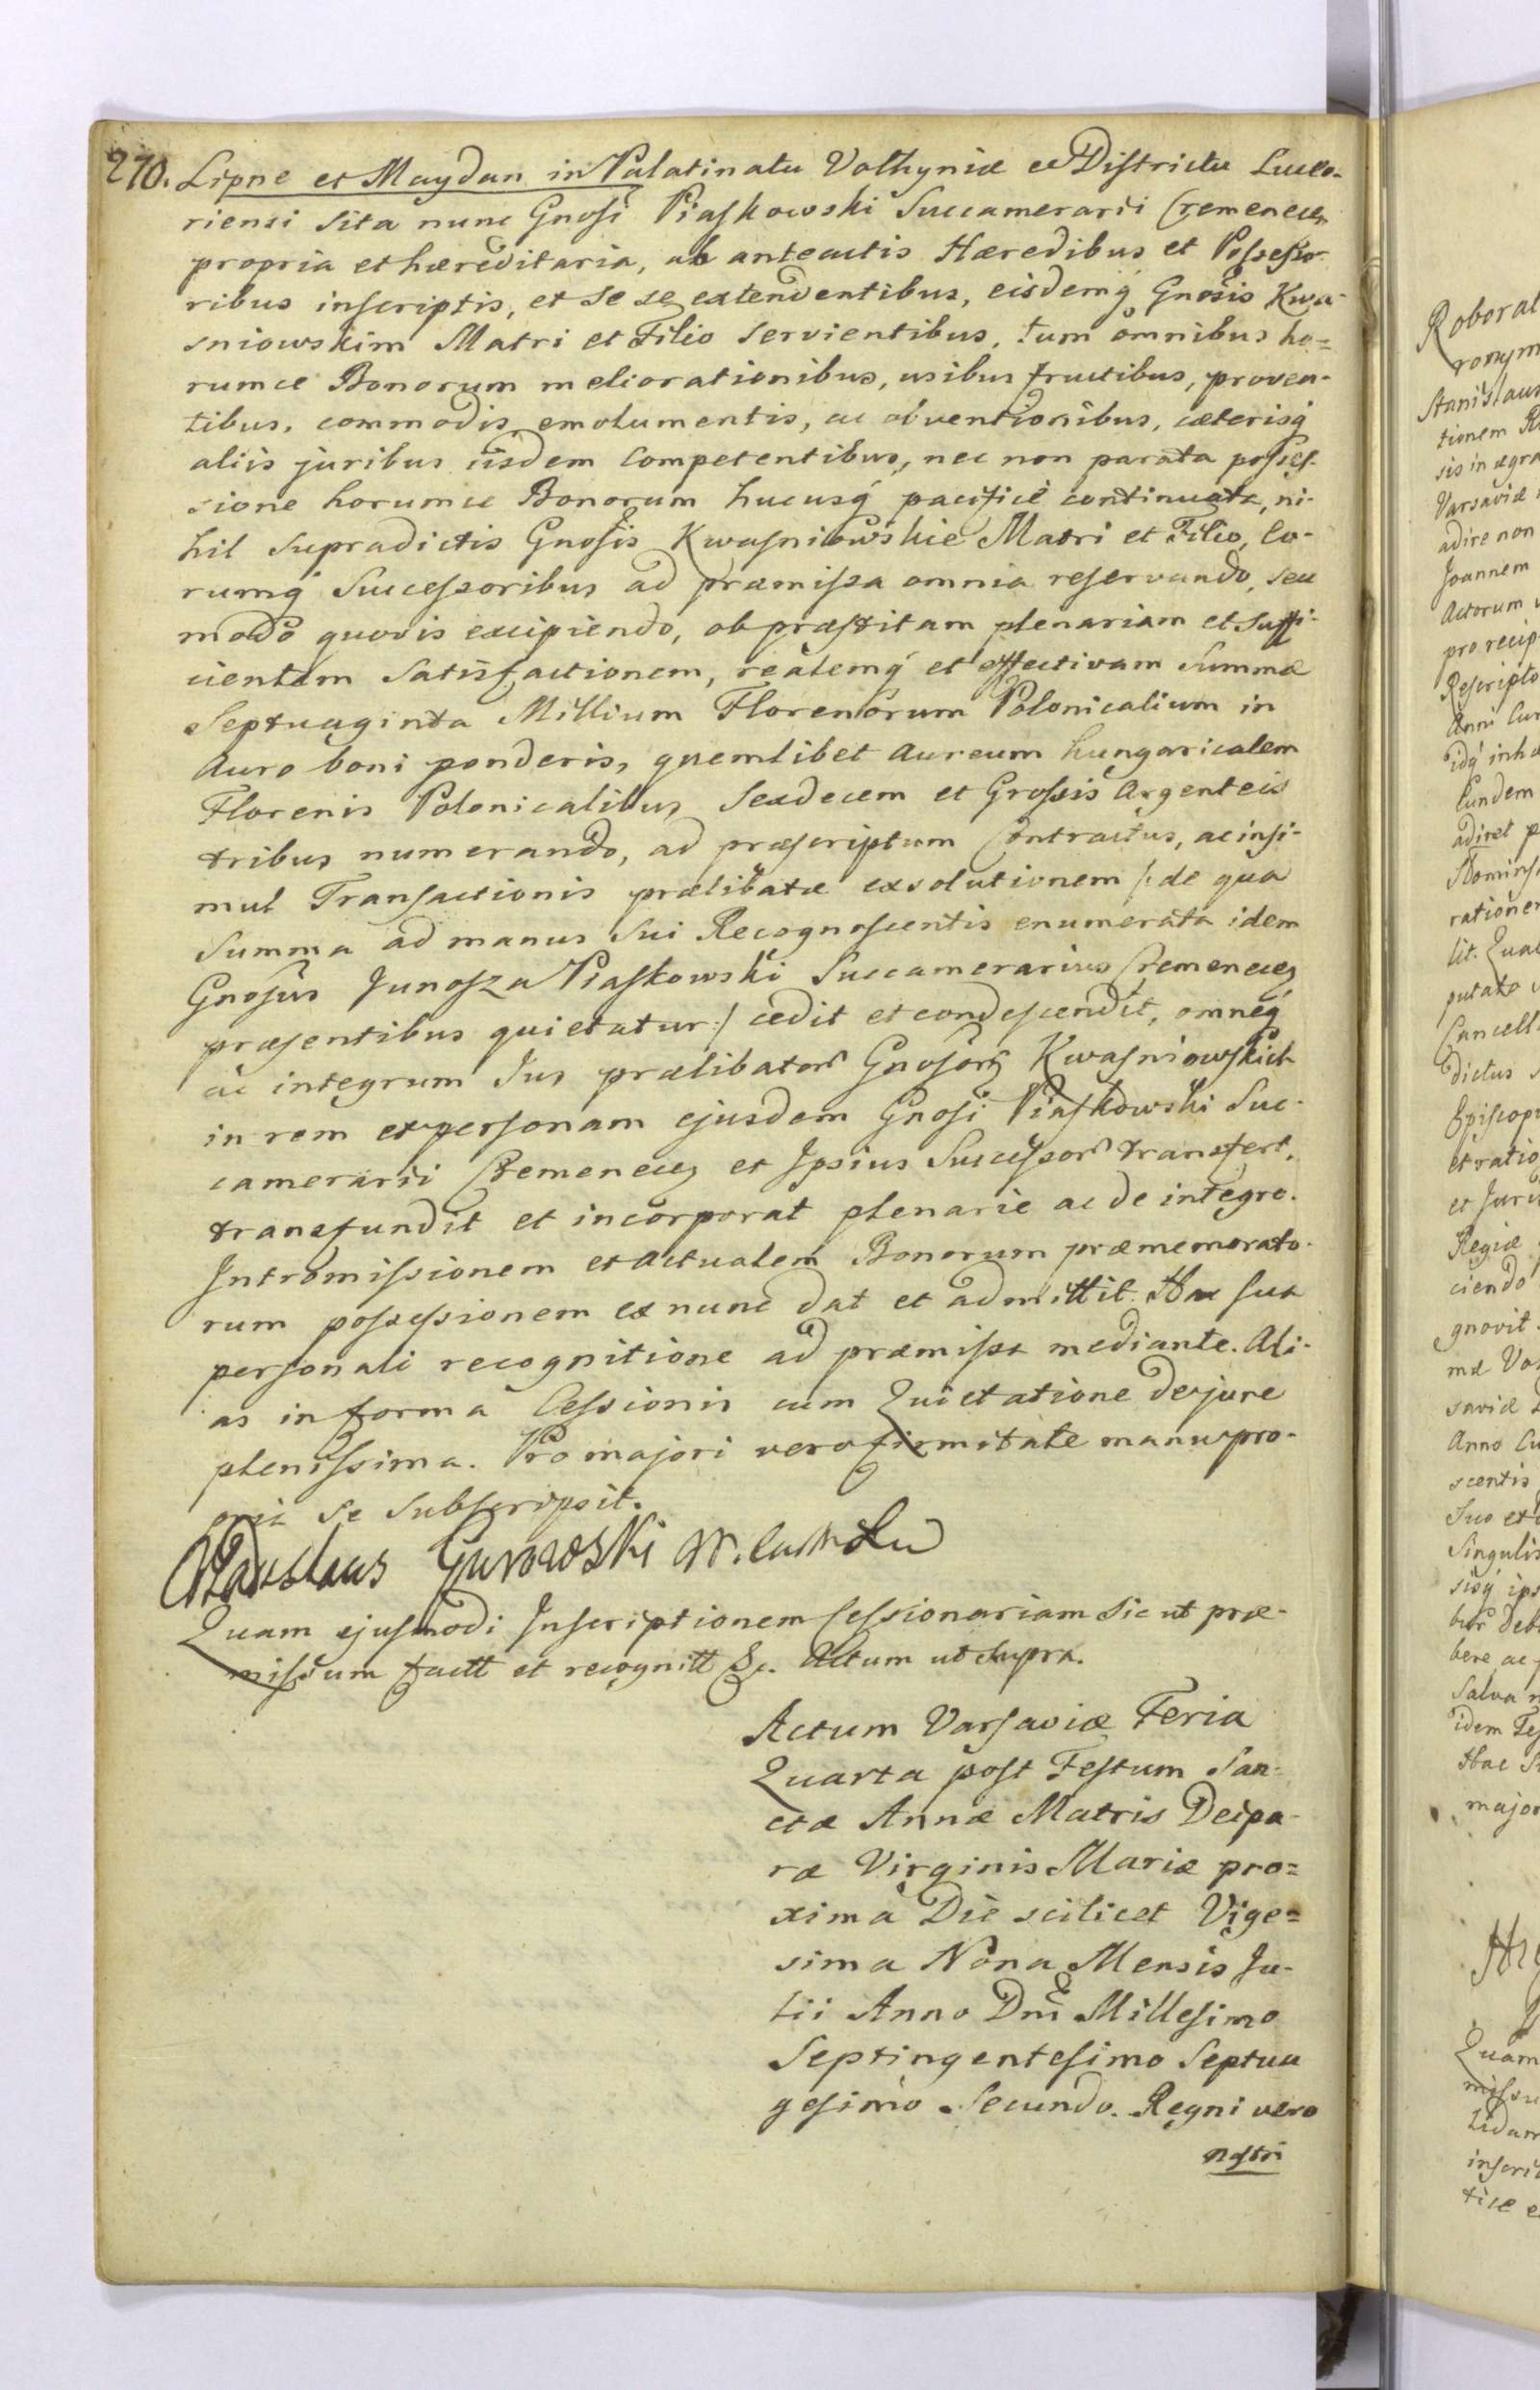 270. Lipne et Maydan in Palatinatu Volhyniæ ec Districtu Luceo-
riensi sita nunc Gnosi Piaskowski Succamerarii Cremenecen
propria et hæreditaria, ab anteactis Hæredibus et Possesso-
ribus inscriptis, et se se extendentibus, eisdemq́ Gnosis Kwa-
sniowskim Matri et Filio servientibus, tum omnibus ho=
rumce Bonorum meliorationibus, usibus fructibus, proven-
tibus, commodis emolumentis, ac obventionibus, cæterisq́
aliis juribus iisdem competentibus, nec non parata posses-
sione horumce Bonorum hucusq́ pacifice continuata, ni-
hil supradictis Gnosis Kwasniowskie Matri et Filio, Eo-
rumq́ Successoribus ad præmissa omnia reservando, seu
modo quovis excipiendo, ob præstitam plenariam et suffi-
cientem satisfactionem, realemq́ et effectivam Summæ
Septuaginta Millium Florenorum Polonicalium in
Auro boni ponderis, quemlibet Aureum hungaricalem
Florenis Polonicalibus Sexdecem et Grossis Argenteis
tribus numerando, ad præscriptum Contractus, ac insi-
mul Transactionis prælibatæ exsolutionem /: de qua
Summa ad manus sui Recognoscentis enumerata idem
Gnosus Junosza Piaskowski Succamerarius Cremenecen
præsentibus quietatur :/ cedit et condescendit, omneq́
ac integrum Jus prælibator Gnosorum Kwasniowskich
in rem et personam ejusdem Gnosi Piaskowski Suc-
camerarii Cremenecen et Ipsius Successor transfert,
transfundit et incorporat plenarie ac de integro.
Intromissionem et actualem Bonorum præmemorato-
rum possessionem ex nunc dat et admittit. Hac sua
personali recognitione ad præmissa mediante. Ali-
as in forma Cessionis cum Quietatione de jure
plenissima. Pro majori vero firmitate manu pro-
pria se subscripsit.
Wladislaus Gurowski
Quam ejusmodi Inscriptionem Cessionariam sic ut præ-
missum factt et recognitt &c. Actum ut supra.
Actum Varsaviæ Feria
Quarta post Festum San-
ctæ Annæ Matris Deipa-
ræ Virginis Mariæ pro=
xima Die scilicet Vige=
sima Nona Mensis Ju-
lii Anno Dni Millesimo
Septingentesimo Septua
gesimo Secundo. Regni vero
nostri
Roborat
ronym
Stanislaus
tionem
sis in ægra
Varsaviæ
adire non
Joannem
Actorum
pro recip
Rescripto
Anni Cur
idq́ inhæ
Eundem
adiret p
rationem
lit. Qual
putato
Cancell
dictus
Episcop
et ratio
et Juri
Regiæ
ciendo
gnovit.
mæ Vo
saviæ
Anno Cu
scentis
Suo et
Singulis
sisq́ ips
Debe
bere ac
Salva
idem
Hac
major
Quam
missu
lidam
inscri
ticæ e